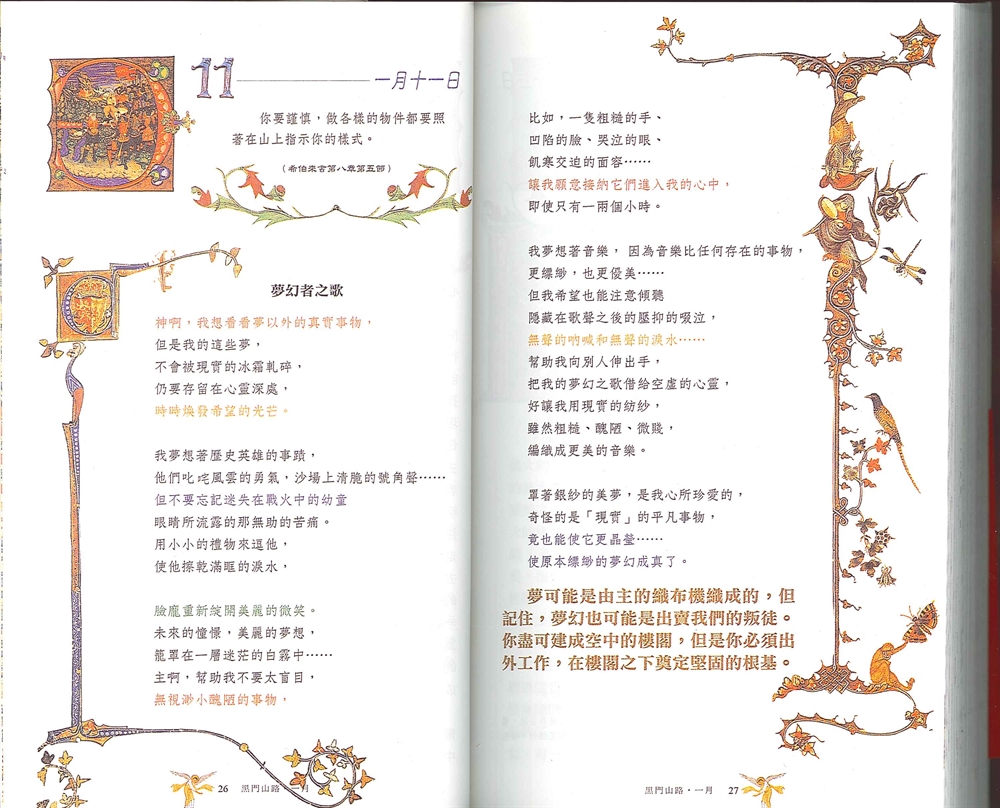 11 一月十一日
你要謹慎，做各樣的物件都要照
著在山上指示你的樣式。
（希伯來書第八章第五節）
夢幻者之歌
神啊，我想看看夢以外的真實事物，
但是我的這些夢，
不會被現實的冰霜軋碎，
仍要存留在心靈深處，
時時煥發希望的光芒。
我夢想著歷史英雄的事蹟，
他們叱咤風雲的勇氣，沙場上清脆的號角聲……
但不要忘記迷失在戰火中的幼童
眼睛所流露的那無助的苦痛。
用小小的禮物來逗他，
使他擦乾滿眶的淚水，
臉龐重新綻開美麗的微笑。
未來的憧憬，美麗的夢想，
籠罩在一層迷茫的白霧中……
主啊，幫助我不要太盲目，
無視渺小醜陋的事物，
26 黑門山路·一月
比如，一隻粗糙的手、
凹陷的臉、哭泣的眼、
飢寒交迫的面容……
讓我願意接納它們進入我的心中，
即使只有一兩個小時。
我夢想著音樂， 因為音樂比任何存在的事物，
更縹緲，也更優美……
但我希望也能注意傾聽
隱藏在歌聲之後的壓抑的啜泣，
無聲的吶喊和無聲的淚水……
幫助我向別人伸出手，
把我的夢幻之歌借給空虛的心靈，
好讓我用現實的紡紗，
雖然粗糙、醜陋、微賤，
編織成更美的音樂。
罩著銀紗的美夢，是我心所珍愛的，
奇怪的是「現實」的平凡事物，
竟也能使它更晶瑩……
使原本縹緲的夢幻成真了。
夢可能是由主的織布機織成的，但
記住，夢幻也可能是出賣我們的叛徒。
你盡可建成空中的樓閣，但是你必須出
外工作，在樓閣之下奠定堅固的根基。
黑門山路·一月 27